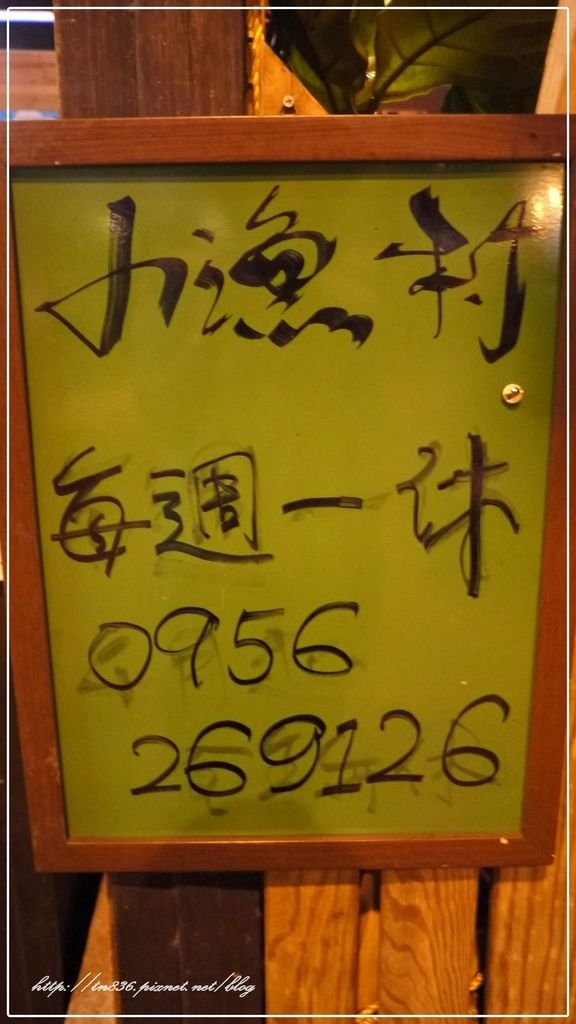 小漁村
每週一休
0956
269126
http://tn836.pixnet.net/blog